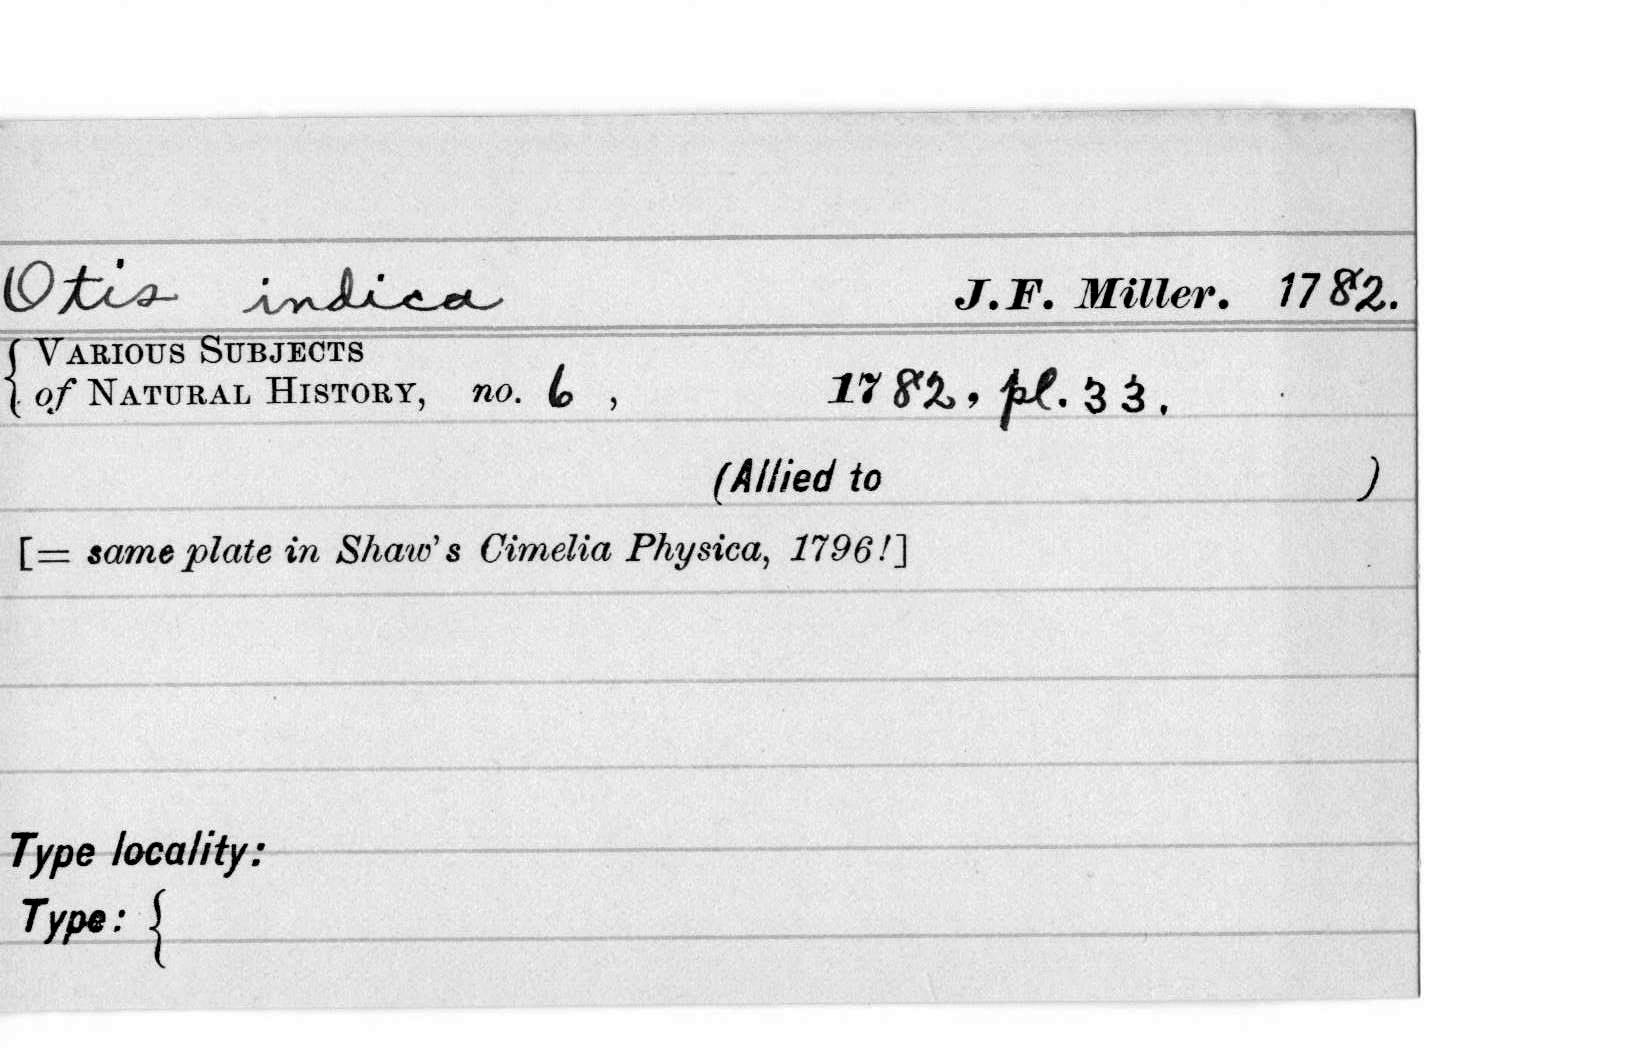 Otis indica J.F. Miller. 1782.
{ Various Subjects
of Natural History, no. 6, 1782, pl. 33.
(Allied to )
[= same plate in Shaw's Cimelia Physica, 1796!]
Type locality:
Type: {